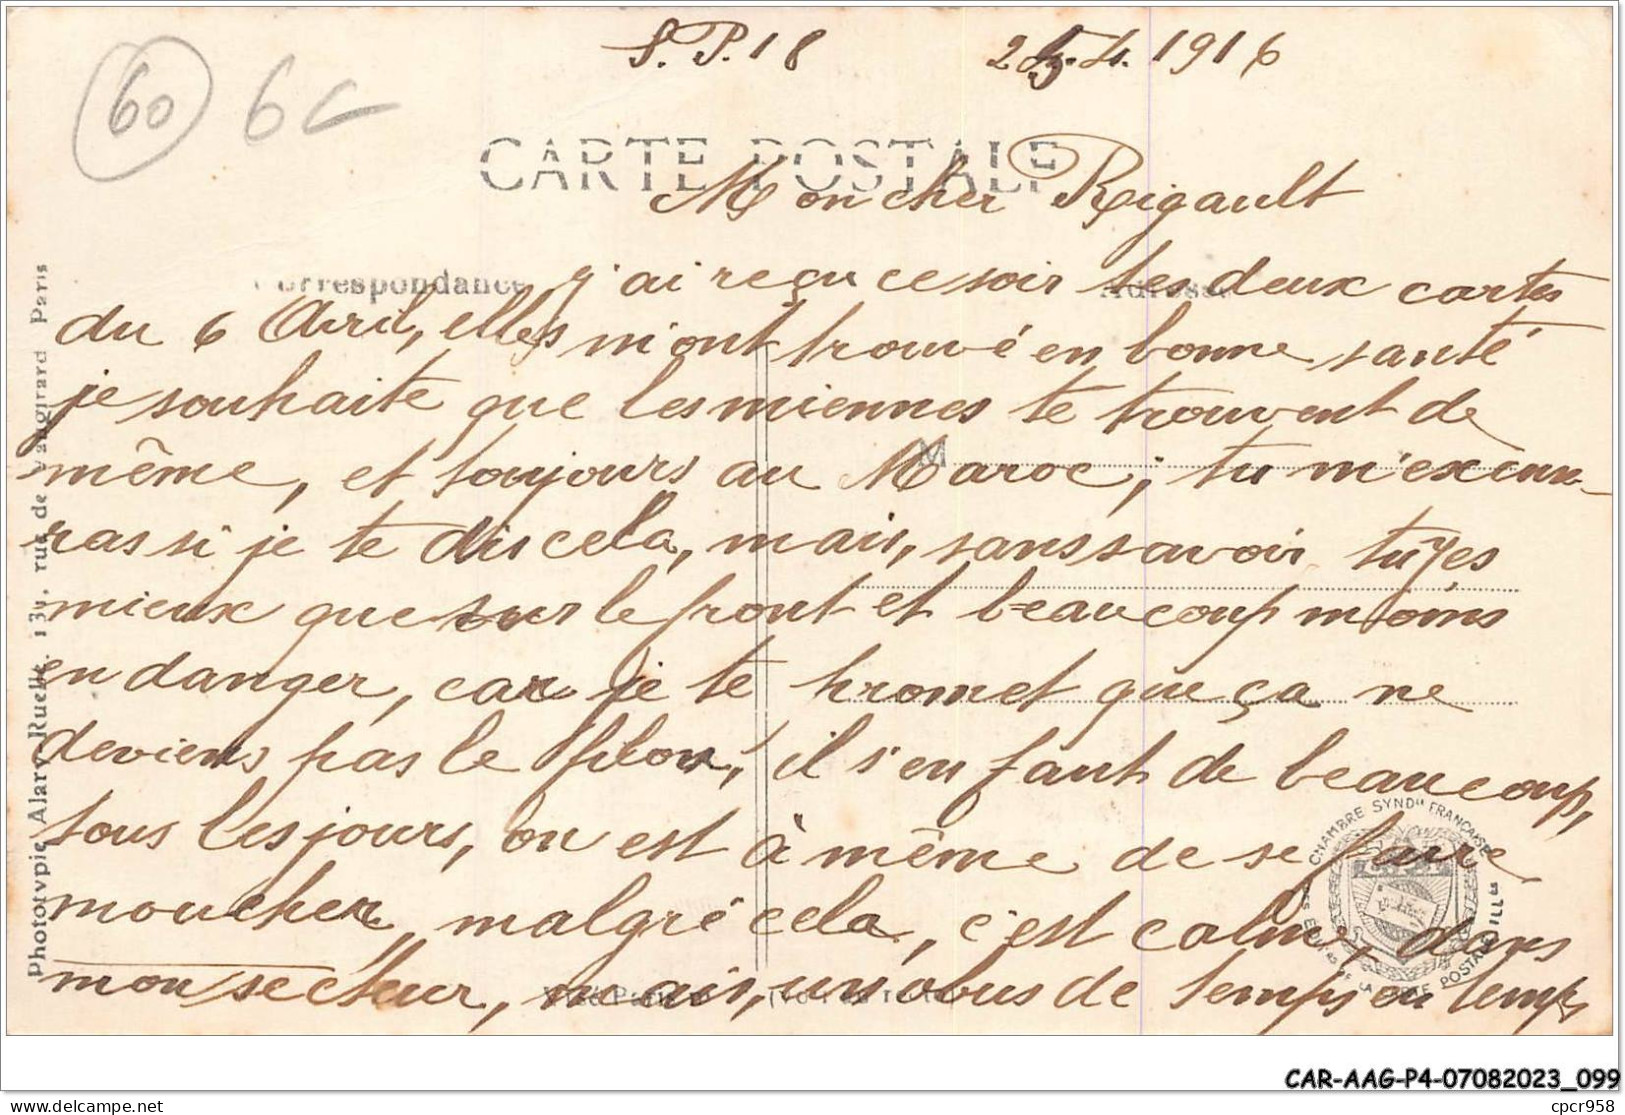 60 6c
S. P. 18 25.4.1916
CARTE POSTALE
Mon cher Rigault
Correspondance
Adresse
j'ai reçu ce soir tes deux cartes
du 6 Avril, elles m'ont trouvé en bonne santé
je souhaite que les miennes te trouvent de
même, et toujours au Maroc, tu m'excuse-
M
ras si je te dis cela, mais, sans savoir tu y es
mieux que sur le front et beaucoup moins
en danger, car je te promet que ça ne
deviens pas le filon, il s'en faut de beaucoup,
tous les jours, on est à même de se faire
moucher, malgré cela, c'est calme dans
mon secteur, mais, un obus de temps en temps
Phototypie Alary-Ruelle. 130, rue de Vaugirard Paris
Visé Paris n°
CHAMBRE SYNDle FRANÇAISE
DE LA CARTE POSTALE ILLee
CAR-AAG-P4-07082023_099
delcampe.net
cpcr958